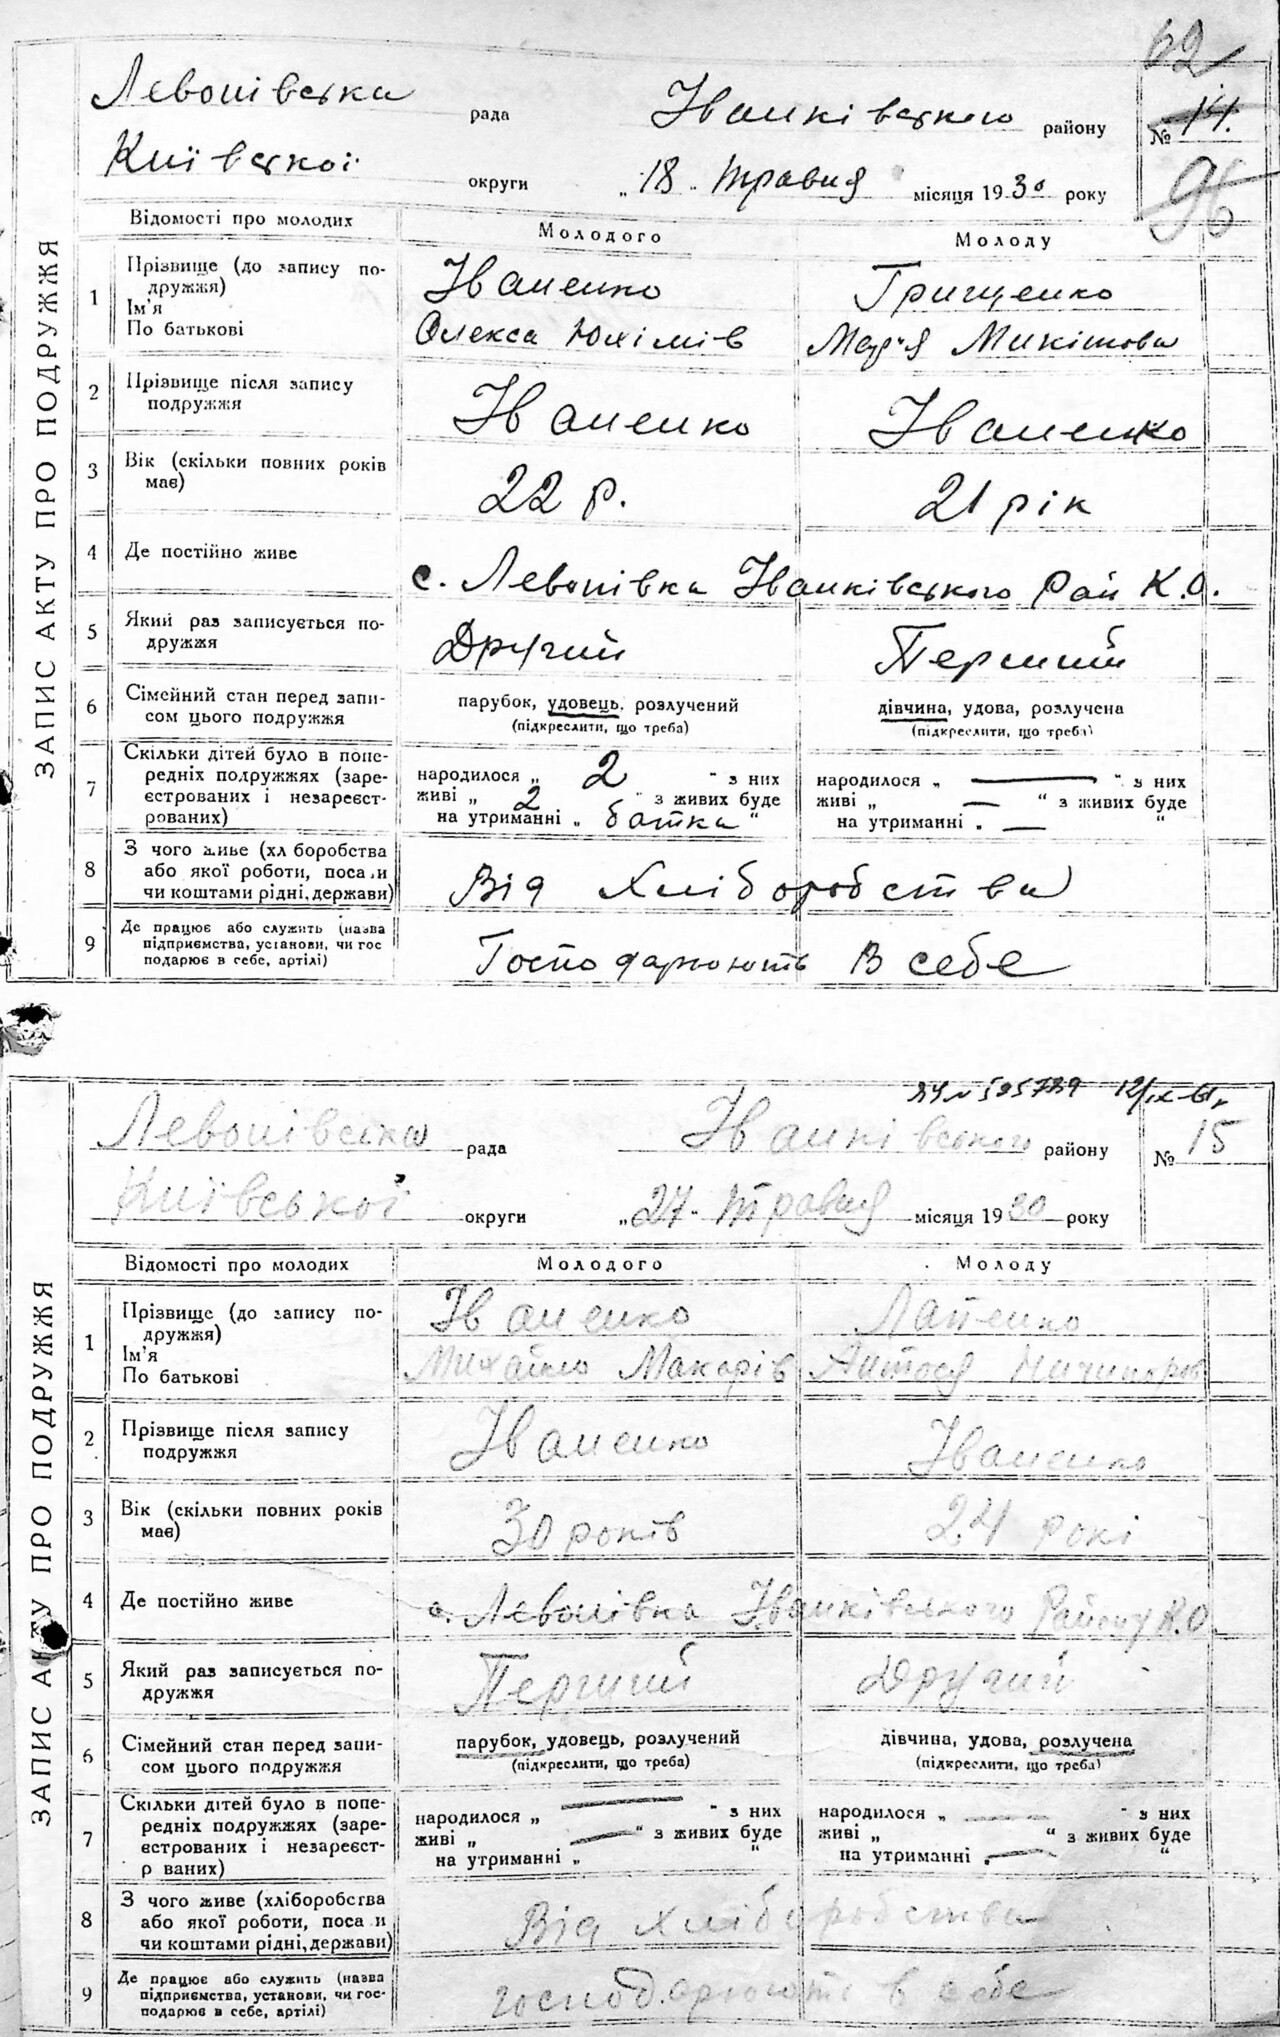 62
Левонівська рада Іванківського району № 14.
Київської округи „18" травня місяця 1930 року
96
ЗАПИС АКТУ ПРО ПОДРУЖЖЯ
Відомості про молодих Молодого Молоду
1 Прізвище (до запису подружжя) Іваненко Грищенко
Ім'я
По батькові Олекса Юхімів Марія Микітова
2 Прізвище після запису подружжя Іваненко Іваненко
3 Вік (скільки повних років має) 22 р. 21 рік
4 Де постійно живе с. Левонівка Іванківського Рай К.О.
5 Який раз записується подружжя Другий Перший
6 Сімейний стан перед записом цього подружжя парубок, удовець, розлучений дівчина, удова, розлучена
(підкреслити, що треба) (підкреслити, що треба)
7 Скільки дітей було в попередніх подружжях (зареєстрованих і незареєстрованих)
народилося „ 2 " з них народилося „ — " з них
живі „ 2 " з живих буде живі „ — " з живих буде
на утриманні „ батка " на утриманні „ — "
8 З чого живе (хліборобства або якої роботи, посади чи коштами рідні, держави) Від Хліборобства
9 Де працює або служить (назва підприємства, установи, чи господарює в себе, артілі) Господарюють В себе
12/IX-61р
Левонівська рада Іванківського району № 15
Київської округи „27" травня місяця 1930 року
ЗАПИС АКТУ ПРО ПОДРУЖЖЯ
Відомості про молодих Молодого Молоду
1 Прізвище (до запису подружжя) Іваненко Лапенко
Ім'я
По батькові Михайло Макарів Антося Ничипоров
2 Прізвище після запису подружжя Іваненко Іваненко
3 Вік (скільки повних років має) 30 років 24 рокі
4 Де постійно живе с. Левонівка Іванківського Району К.О.
5 Який раз записується подружжя Перший Другий
6 Сімейний стан перед записом цього подружжя парубок, удовець, розлучений дівчина, удова, розлучена
(підкреслити, що треба) (підкреслити, що треба)
7 Скільки дітей було в попередніх подружжях (зареєстрованих і незареєстрованих)
народилося „ — " з них народилося „ — " з них
живі „ — " з живих буде живі „ " з живих буде
на утриманні „ " на утриманні „ — "
8 З чого живе (хліборобства або якої роботи, посади чи коштами рідні, держави) Від хліборобства
9 Де працює або служить (назва підприємства, установи, чи господарює в себе, артілі) господарюють в себе